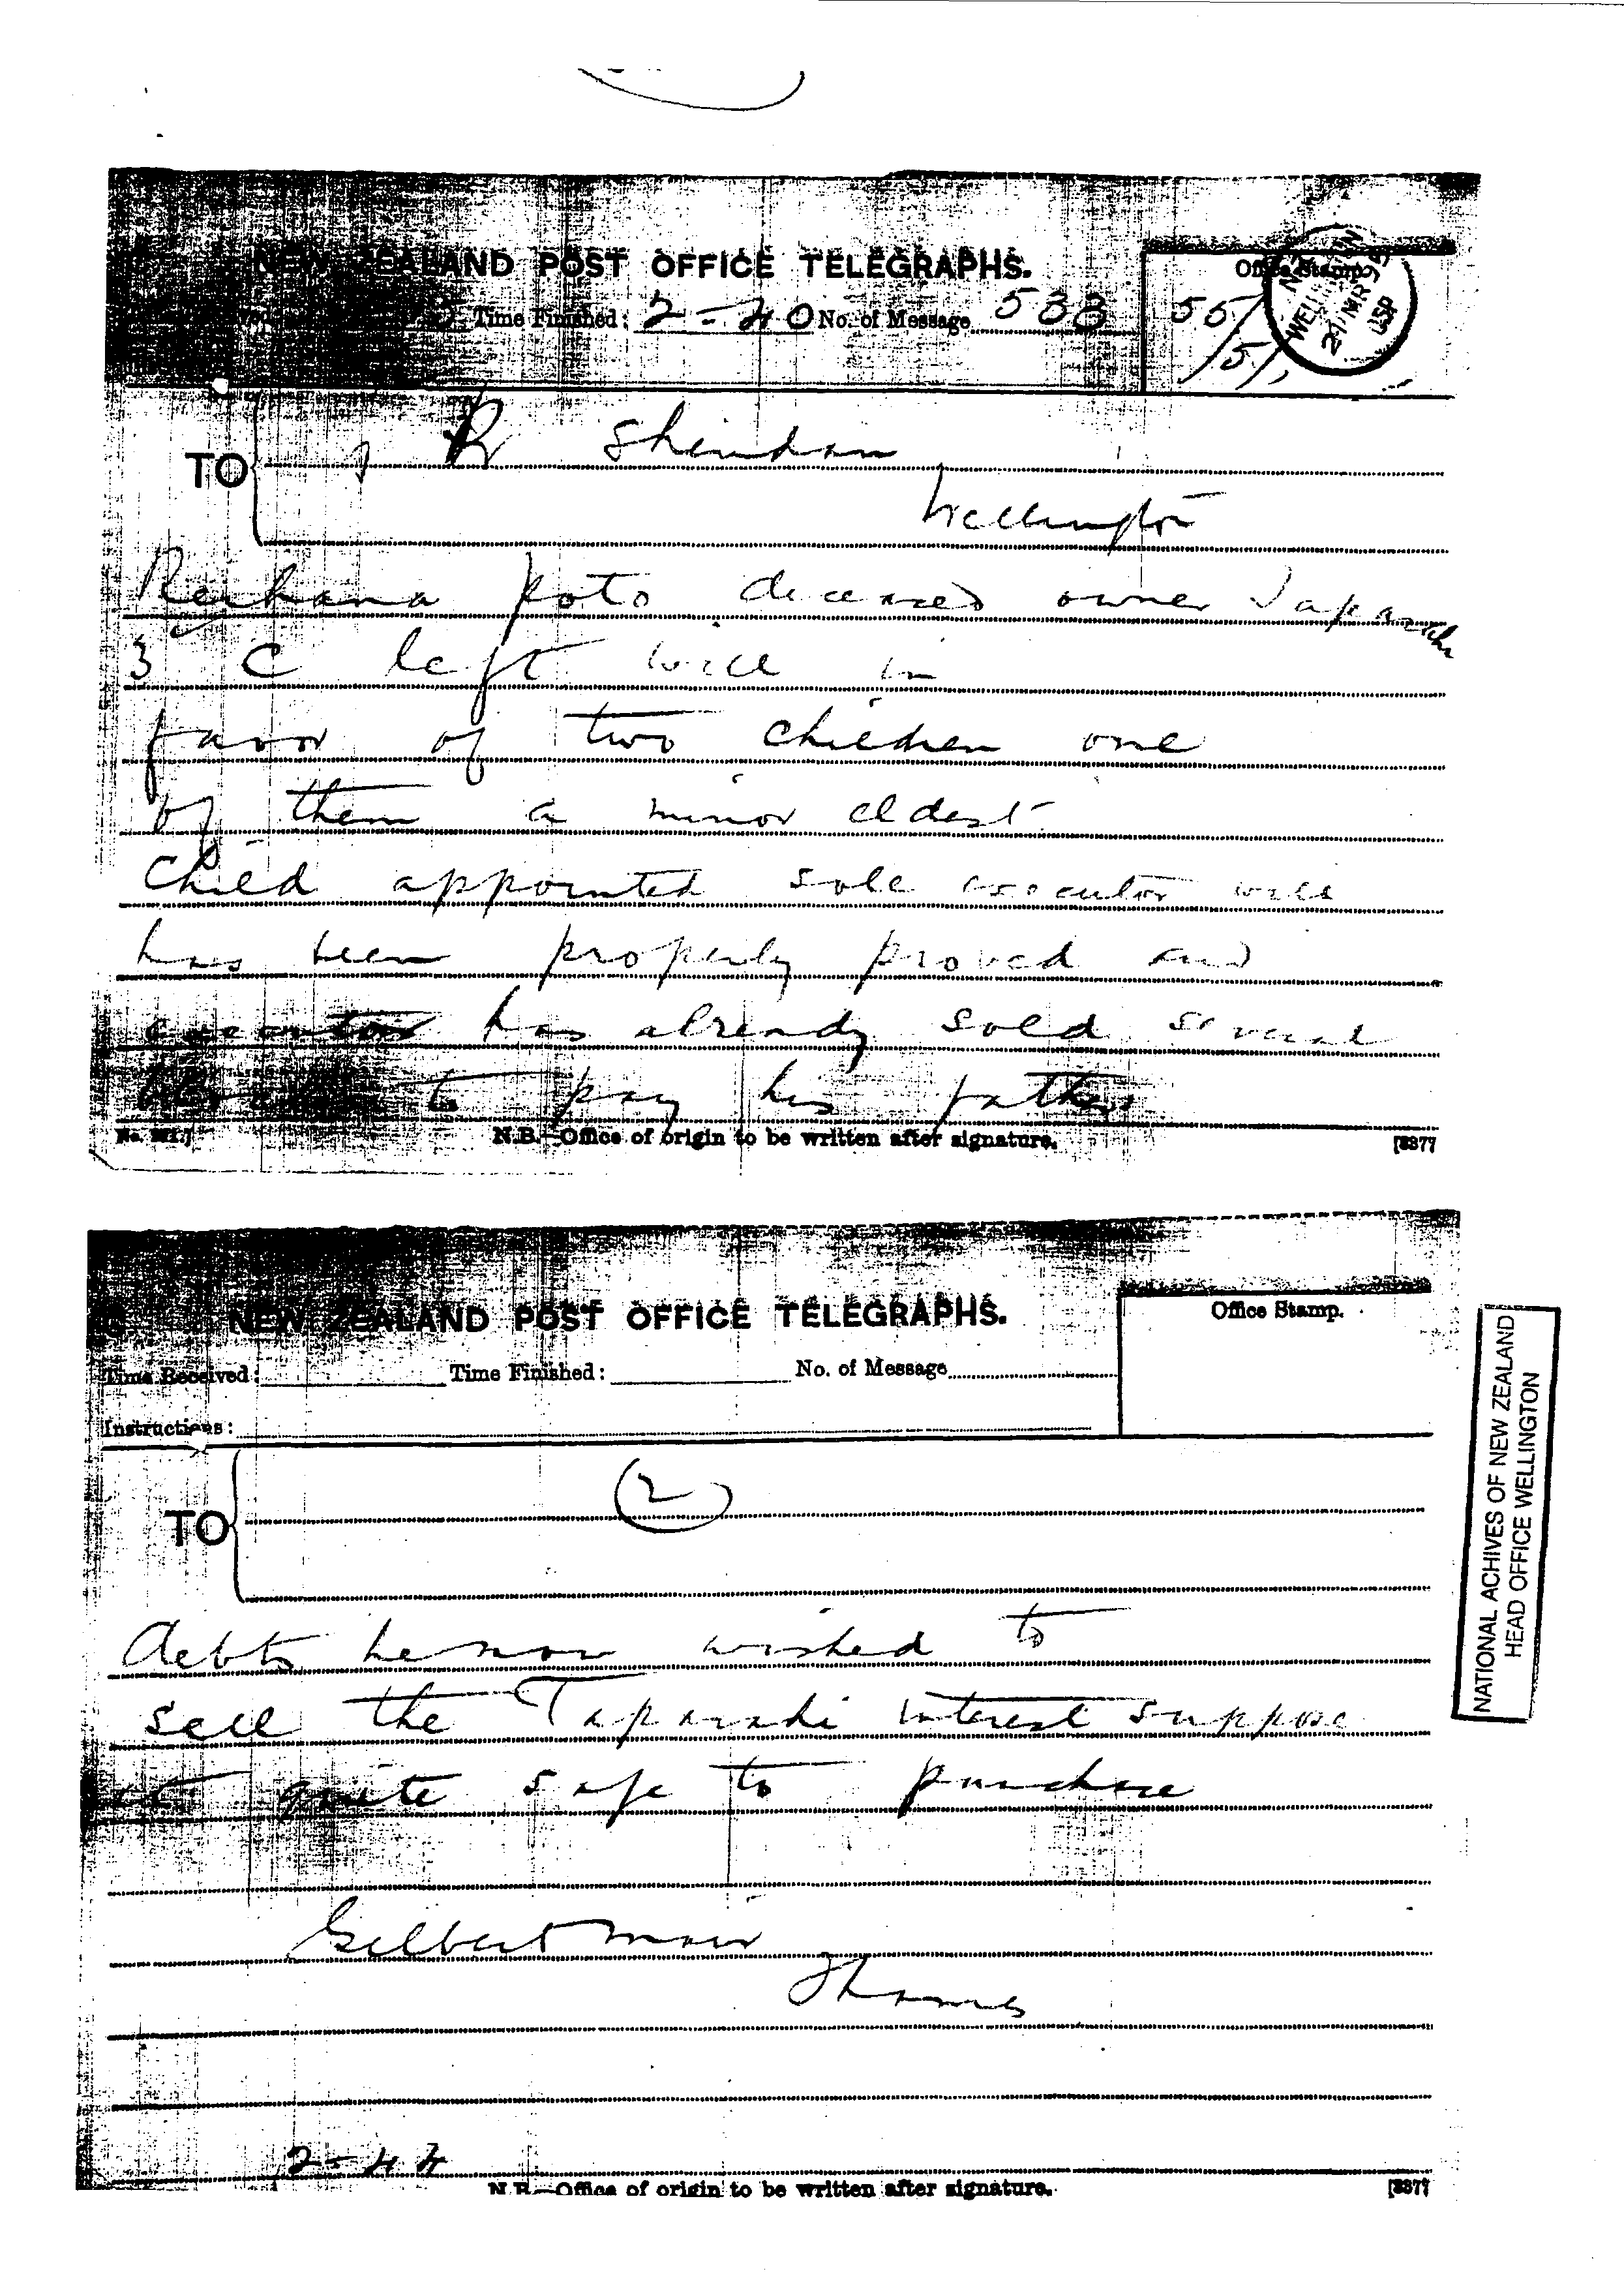 NEW ZEALAND POST OFFICE TELEGRAPHS.
Office Stamp.
Time Finished: 2-40 No. of Message 533
55
1/5
WELLINGTON
TO
P Sheridan
Wellington
Reihana Poto deceased owner Taparahi
3 C left will in
favor of two children one
of them a minor eldest
child appointed sole executor will
has been properly proved and
executor has already sold several
to pay his fathers
N.B.—Office of origin to be written after signature.
NEW ZEALAND POST OFFICE TELEGRAPHS.
Office Stamp.
Time Received: Time Finished: No. of Message
Instructions:
TO
(2)
debts he now wished to
sell the Taparahi interest suppose
it quite safe to purchase
Gilbert Mair
Thames
2-44
N.B.—Office of origin to be written after signature.
NATIONAL ACHIVES OF NEW ZEALAND
HEAD OFFICE WELLINGTON